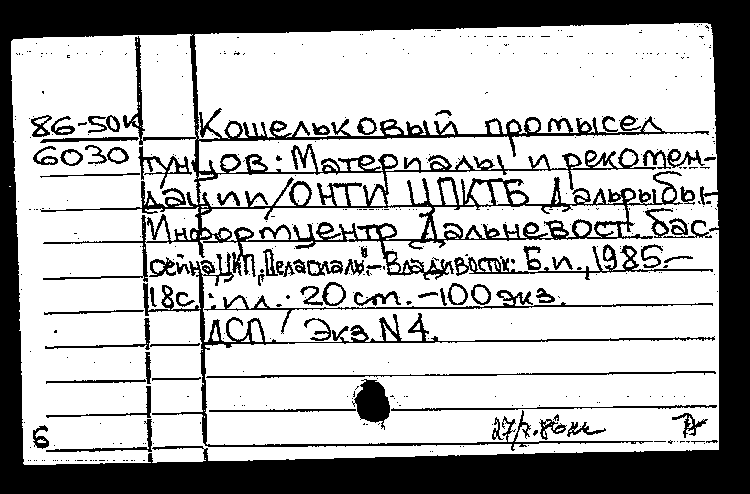 86-50к Кошельковый промысел
6030 тунцов: Материалы и рекомен-
дации/ОНТИ ЦПКТБ Дальрыбы.
Информцентр Дальневост. бас-
сейна, ЦКП - Владивосток: Б.и., 1985.-
18с.: ил.- 20 см. -100 экз.
ДСП. Экз. N 4.
6